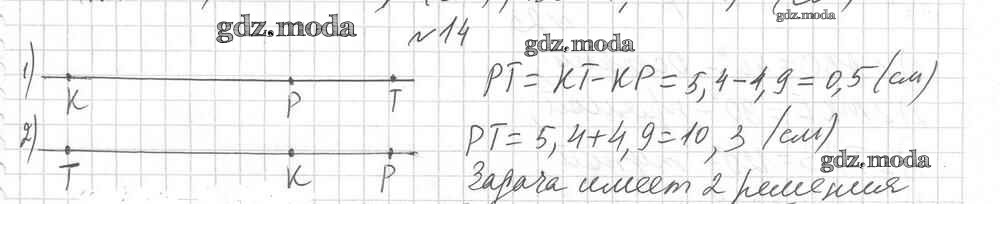 gdz.moda
№14
gdz.moda
gdz.moda
1) K P T
PT = KT - KP = 5,4 - 4,9 = 0,5 (см)
2) T K P
PT = 5,4 + 4,9 = 10,3 (см)
gdz.moda
Задача имеет 2 решения